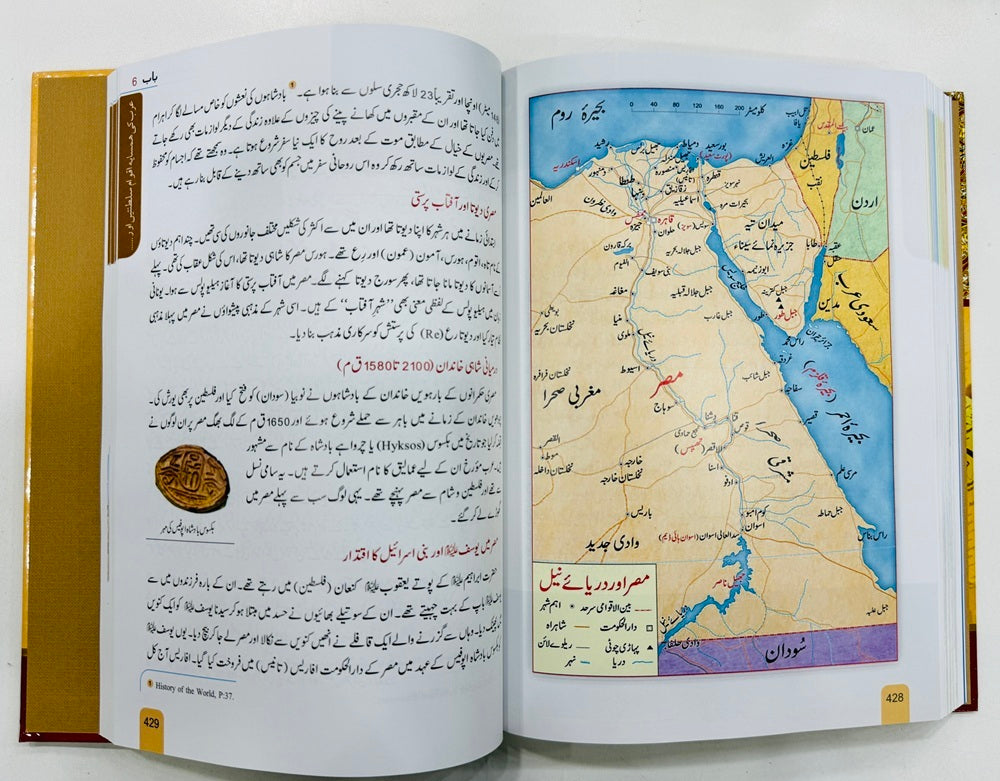 بحیرۂ روم
0 40 80 120 160 200 کلومیٹر
تل ابیب
یافا
بیت المقدس
عمان
غزہ
فلسطین
نقب
اردن
العریش
بورسعید
(پورٹ سعید)
دمیاط
رشید
اسکندریہ
دمنہور
منصورہ
طنطا
بنہا
زقازیق
قنطرہ
اسماعیلیہ
نہر سویز
بحیرات مرہ
العالمین
وادی نطرون
قاہرہ
جیزہ
حلوان
سویس (سویز)
میدان تیہ
جزیرہ نمائے سیناء
عقبہ
طابا
الفیوم
بنی سویف
جبل جلالہ بحریہ
جبل جلالہ قبلیہ
ابوزنیمہ
جبل کترینہ
جبل طور
طور
مدین
سعودی عرب
مغاغہ
بویطی
نخلستان بحریہ
منیا
ملوی
جبل غارب
راس محمد
غردقہ
دریائے نیل
اسیوط
نخلستان فرافرہ
مغربی صحرا
مصر
سوہاج
جبل شائب
سفاجا
(بحیرۂ قلزم)
بحیرۂ احمر
قنا
قوص
نجع حمادی
الاقصر
اسنا
ادفو
قصیر
مشرقی صحرا
القصر
موط
نخلستان داخلہ
خارجہ
نخلستان خارجہ
مرسی علم
باریس
کوم امبو
اسوان
سد العالی اسوان (اسوان ہائی ڈیم)
جبل حماطہ
راس بناس
وادی جدید
جھیل ناصر
جبل علبہ
وادی حلفا
سُودان
مصر اور دریائے نیل
بین الاقوامی سرحد
اہم شہر
دارالحکومت
شاہراہ
پہاڑی چوٹی
ریلوے لائن
دریا
نہر
428
باب 6
عرب کی ہمسایہ اقوام سلطنتیں اور......
میٹر) اونچا اور تقریباً 23 لاکھ حجری سلوں سے بنا ہوا ہے۔ 1 بادشاہوں کی نعشوں کو خاص مسالے لگا کر اہرام
دفن کیا جاتا تھا اور ان کے مقبروں میں کھانے پینے کی چیزوں کے علاوہ زندگی کے دیگر لوازمات بھی رکھے جاتے
مصریوں کے خیال کے مطابق موت کے بعد روح کا ایک نیا سفر شروع ہوتا ہے۔ وہ سمجھتے تھے کہ اجسام کو محفوظ
کرنے اور زندگی کے لوازمات ساتھ رکھ کر وہ اس روحانی سفر میں جسم کو بھی ساتھ دینے کے قابل بنا رہے ہیں۔
مصری دیوتا اور آفتاب پرستی
ابتدائی زمانے میں ہر شہر کا اپنا دیوتا تھا اور ان میں سے اکثر کی شکلیں مختلف جانوروں کی سی تھیں۔ چند اہم دیوتاؤں
کے نام تاہ، اقوم، ہورس، آمون (عمون) اور رع تھے۔ ہورس مصر کا شاہی دیوتا تھا، اس کی شکل عقاب کی تھی۔ پہلے
اسے آسمانوں کا دیوتا مانا جاتا تھا، پھر سورج دیوتا کہنے لگے۔ مصر میں آفتاب پرستی کا آغاز ہیلیو پولس سے ہوا۔ یونانی
میں ہیلیو پولس کے لفظی معنی بھی ”شہرِ آفتاب“ کے ہیں۔ اسی شہر کے مذہبی پیشواؤں نے مصر میں پہلا مذہبی
تیار کیا اور دیوتا رع (Re) کی پرستش کو سرکاری مذہب بنا دیا۔
درمیانی شاہی خاندان (2100 تا 1580 ق م)
مصری حکمرانوں کے بارہویں خاندان کے بادشاہوں نے نوبیا (سوڈان) کو فتح کیا اور فلسطین پر بھی یورش کی۔
خاندان کے زمانے میں باہر سے حملے شروع ہوئے اور 1650 ق م کے لگ بھگ مصر پر ان لوگوں نے
کر لیا جو تاریخ میں ہکسوس (Hyksos) یا چرواہے بادشاہ کے نام سے مشہور
عرب مؤرخ ان کے لیے عمالیق کا نام استعمال کرتے ہیں۔ یہ سامی نسل
تھے اور فلسطین و شام سے مصر پہنچے تھے۔ یہی لوگ سب سے پہلے مصر میں
گھوڑے لے کر گئے۔
ہکسوس بادشاہ اپوفیس کی مہر
مصر میں یوسف علیہ السلام اور بنی اسرائیل کا اقتدار
حضرت ابراہیم علیہ السلام کے پوتے یعقوب علیہ السلام کنعان (فلسطین) میں رہتے تھے۔ ان کے بارہ فرزندوں میں سے
یوسف علیہ السلام باپ کے بہت چہیتے تھے۔ ان کے سوتیلے بھائیوں نے حسد میں مبتلا ہو کر سیدنا یوسف علیہ السلام کو ایک کنویں
پھینک دیا۔ وہاں سے گزرنے والے ایک قافلے نے انھیں کنویں سے نکالا اور مصر لے جا کر بیچ دیا۔ یوں یوسف علیہ السلام
ہکسوس بادشاہ اپوفیس کے عہد میں مصر کے دارالحکومت افاریس (تانیس) میں فروخت کیا گیا۔ افاریس آج کل
1 History of the World, P:37.
429